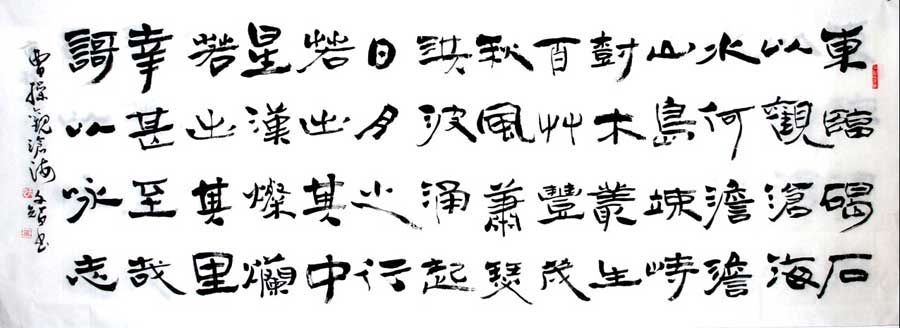 東臨碣石
以觀滄海
水何澹澹
山島竦峙
樹木叢生
百艸豐茂
秋風蕭瑟
洪波涌起
日月之行
若出其中
星漢燦爛
若出其里
幸甚至哉
謌以咏志
曹操觀滄海